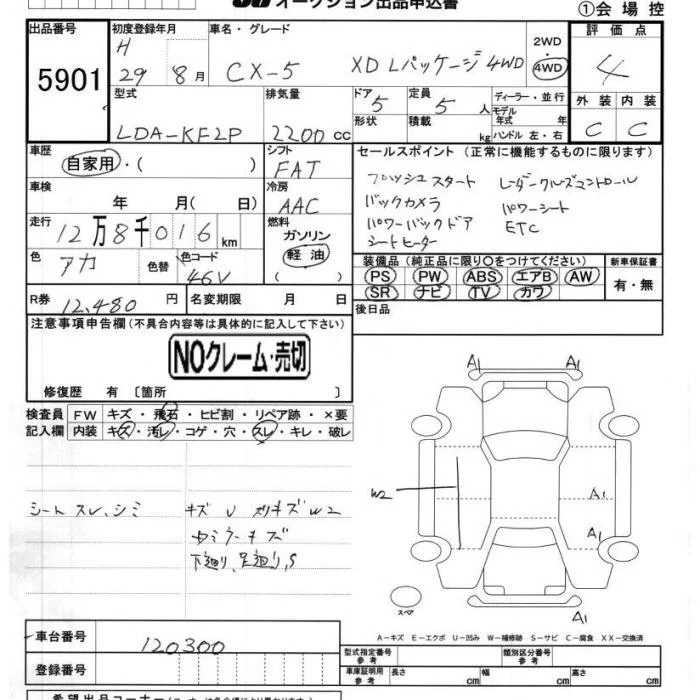 オークション出品申込書
①会場控
出品番号
5901
初度登録年月
H 29 8月
車名・グレード
CX-5 XD Lパッケージ 4WD
2WD
4WD
評価点
4
外装 内装
C C
型式
LDA-KF2P
排気量
2200cc
ドア
5
形状
定員
5人
積載
kg
ディーラー・並行
モデル年式 年
ハンドル 左・右
車歴
自家用・( )
シフト
FAT
車検
年 月( 日)
冷房
AAC
走行
12万8千016km
燃料
ガソリン
軽油
( )
色
アカ
色替
色コード
46V
R券 12,480円
名変期限 月 日
セールスポイント (正常に機能するものに限ります)
プッシュスタート レーダークルーズコントロール
バックカメラ パワーシート
パワーバックドア ETC
シートヒーター
装備品 (純正品に限り○をつけてください)
PS PW ABS エアB AW
SR ナビ TV カワ
新車保証書
有・無
後日品
注意事項申告欄(不具合内容等は具体的に記入して下さい)
NOクレーム・売切
修復歴 有 〔箇所 〕
検査員記入欄
FW キズ・飛石・ヒビ割・リペア跡・×要
内装 キズ・汚レ・コゲ・穴・スレ・キレ・破レ
シートスレ、シミ
キズ U スリキズ W2
キズ
下廻り、足廻り、S
A1 A1
W2
A1
A1
A1
スペア
A－キズ E－エクボ U－凹み W－補修跡 S－サビ C－腐食 XX－交換済
車台番号
120300
登録番号
型式指定番号 参考
類別区分番号 参考
車庫証明用 参考
長さ cm 幅 cm 高さ cm
希望出品コーナー